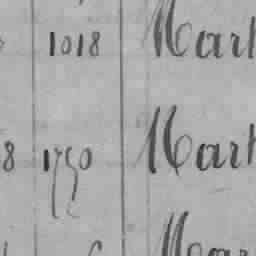 1018 Mart
8 1750 Mart